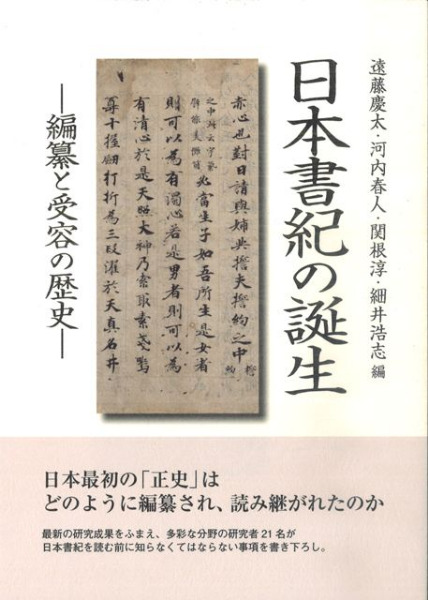 遠藤慶太・河内春人・関根淳・細井浩志 編
日本書紀の誕生
―編纂と受容の歴史―
赤心也對曰請與姉共誓夫誓約之中
則可以為有濁心若是男者則可以為
有清心於是天照大神乃索取素戔嗚
尊十握劒打折為三段濯於天真名井
日本最初の「正史」は
どのように編纂され、読み継がれたのか
最新の研究成果をふまえ、多彩な分野の研究者21名が
日本書紀を読む前に知らなくてはならない事項を書き下ろし。